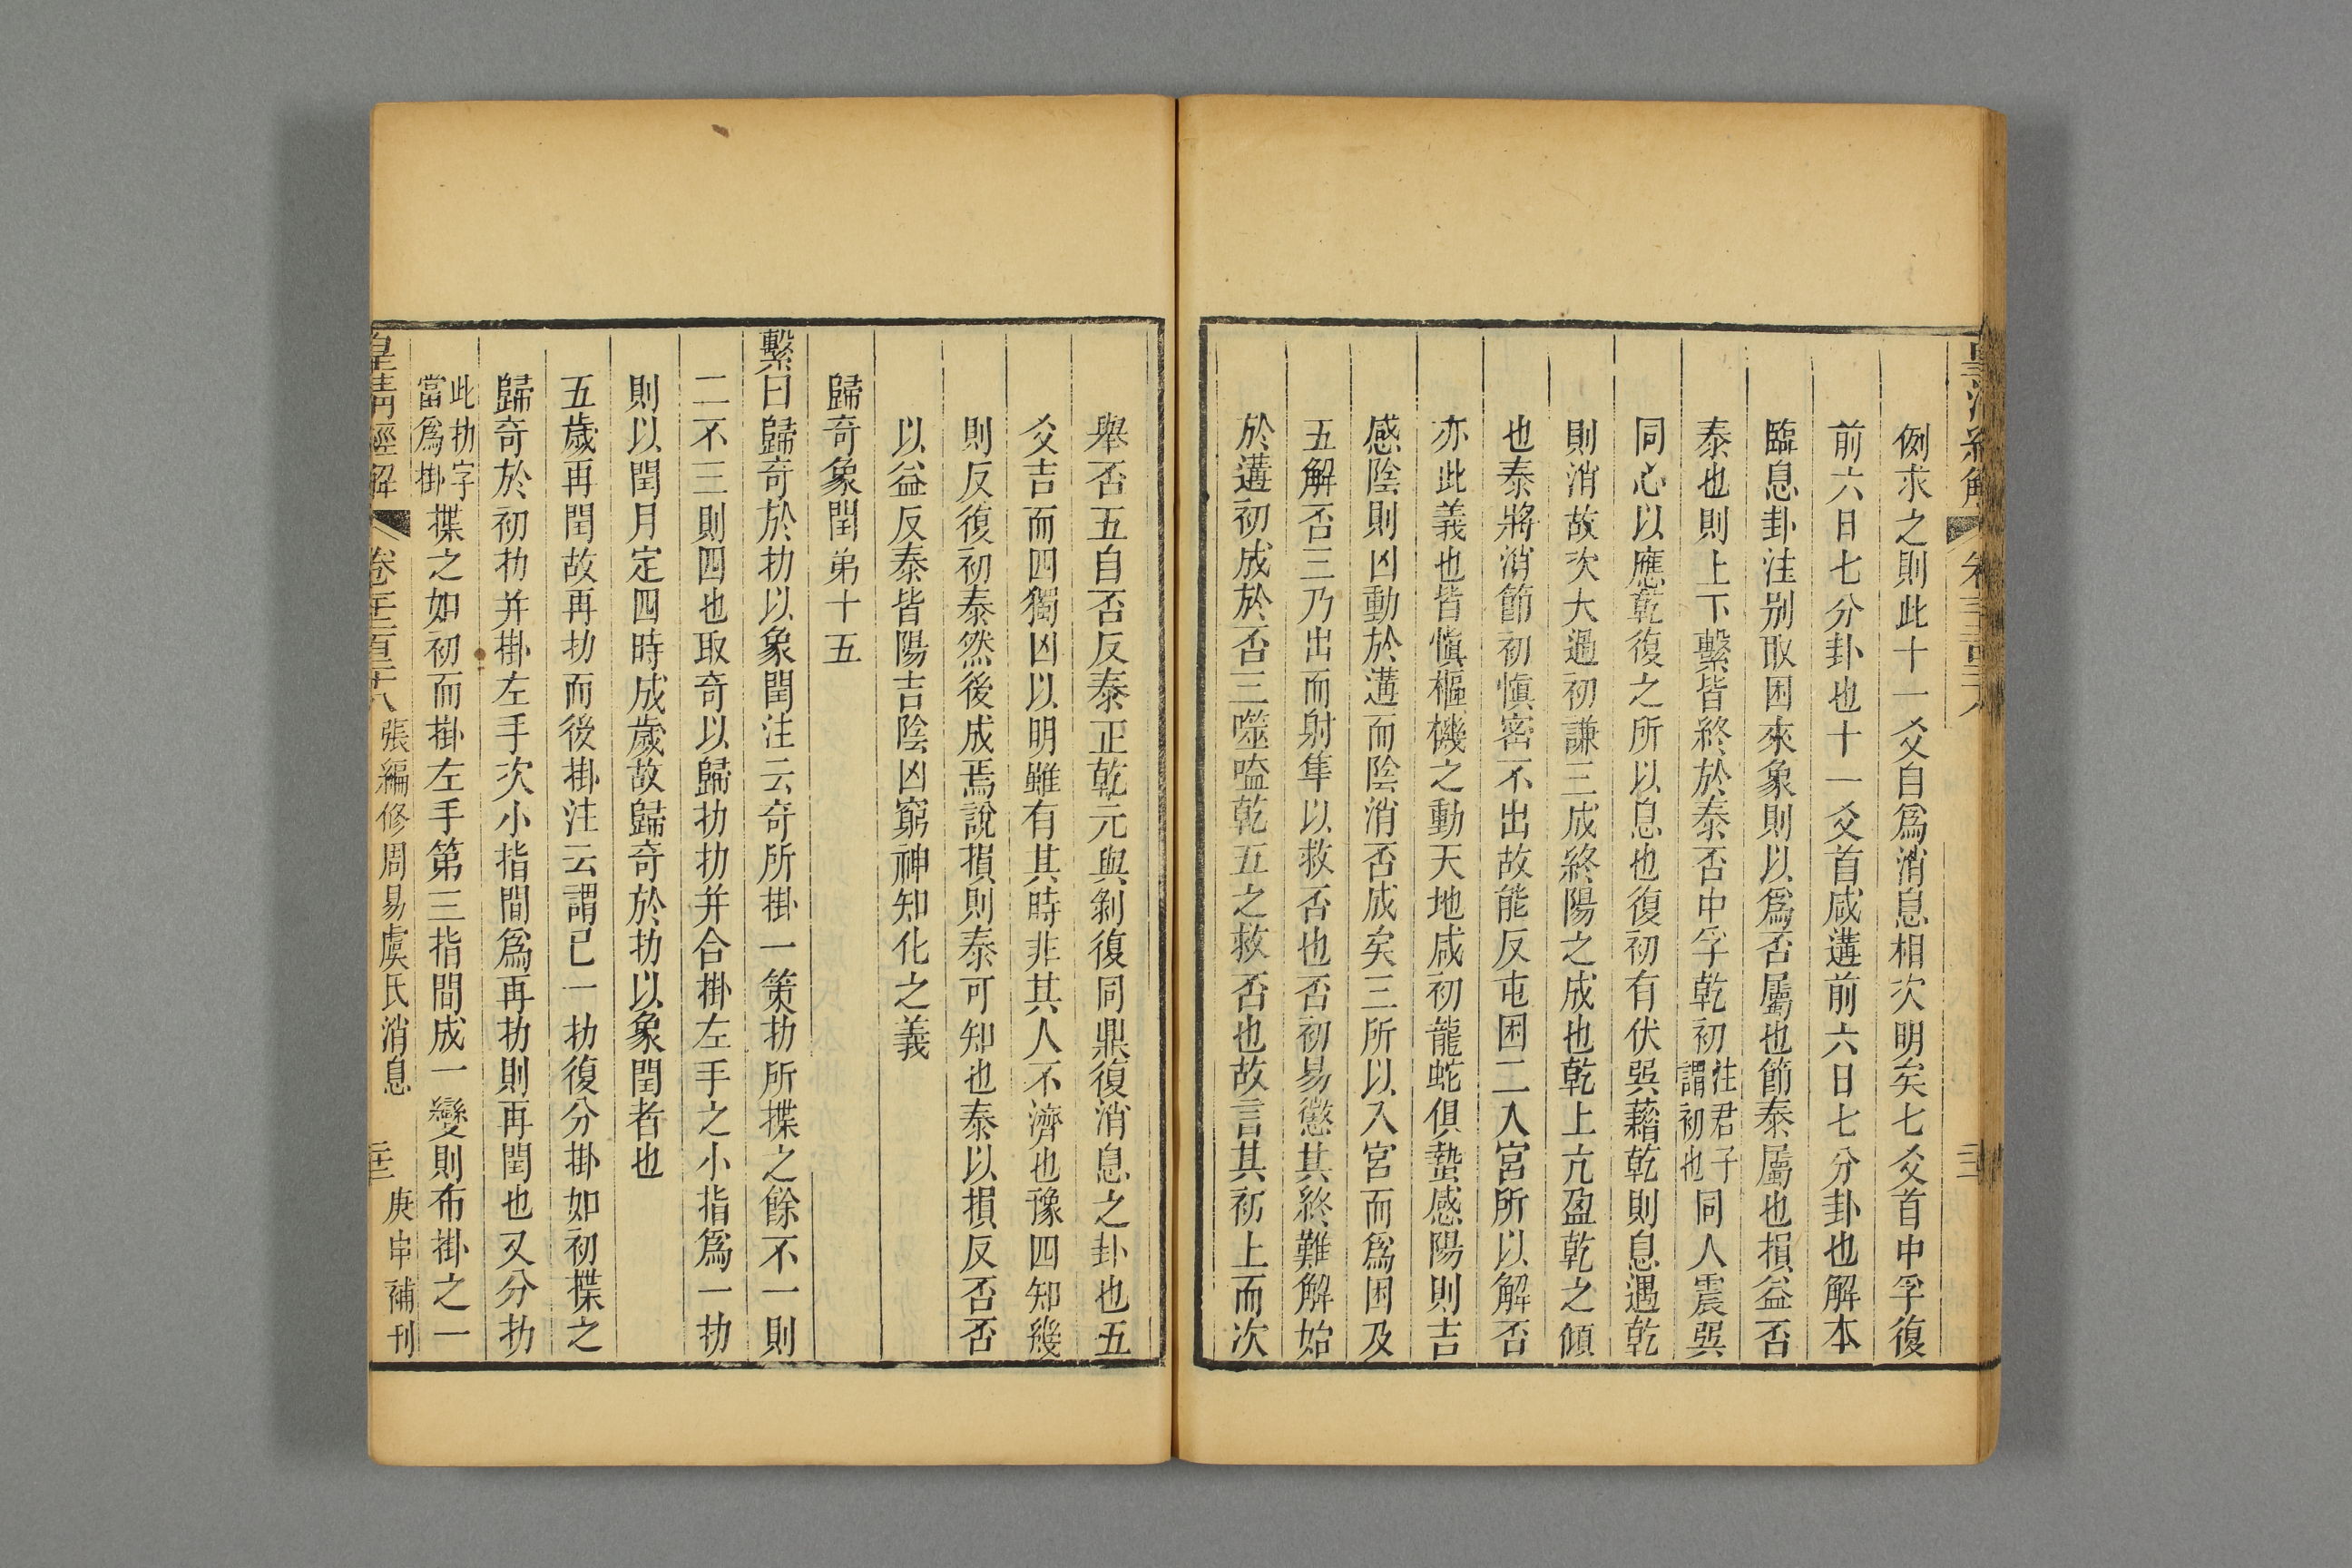 例求之則此十一爻自爲消息相次明矣七爻首中孚復
前六日七分卦也十一爻首咸遘前六日七分卦也解本
臨息卦注别取困來象則以爲否屬也節泰屬也損益否
泰也則上下繫皆終於泰否中孚乾初注君子謂初也同人震巽
同心以應乾復之所以息也復初有伏巽藉乾則息遇乾
則消故次大過初謙三成終陽之成也乾上亢盈乾之傾
也泰將消節初愼密不出故能反屯困二入宮所以解否
亦此義也皆愼樞機之動天地咸初龍蛇俱蟄感陽則吉
感陰則凶動於遘而陰消否成矣三所以入宮而爲困及
五解否三乃出而射隼以救否也否初易懲其終難解始
於遘初成於否三噬嗑乾五之救否也故言其初上而次
舉否五自否反泰正乾元與剝復同鼎復消息之卦也五
爻吉而四獨凶以明雖有其時非其人不濟也豫四知幾
則反復初泰然後成焉說損則泰可知也泰以損反否否
以益反泰皆陽吉陰凶窮神知化之義
歸奇象閏弟十五
繫曰歸奇於扐以象閏注云奇所掛一策扐所揲之餘不一則
二不三則四也取奇以歸扐扐并合掛左手之小指爲一扐
則以閏月定四時成歲故歸奇於扐以象閏者也
五歲再閏故再扐而後掛注云謂已一扐復分掛如初揲之
歸奇於初扐并掛左手次小指間爲再扐則再閏也又分扐
此扐字當爲掛揲之如初而掛左手第三指間成一變則布掛之一
皇清經解 卷千二百十八 張編修周易虞氏消息 庚申補刊